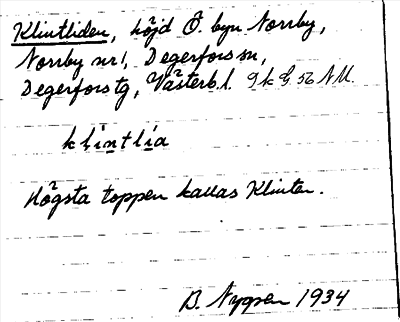 Klintliden, höjd Ö. byn Norrby,
Norrby nr 1, Degerfors sn,
Degerfors tg, Västerb. l. Gk G 56 N.M.
klintlia
Högsta toppen kallas Klinten.
B. Nygren 1934